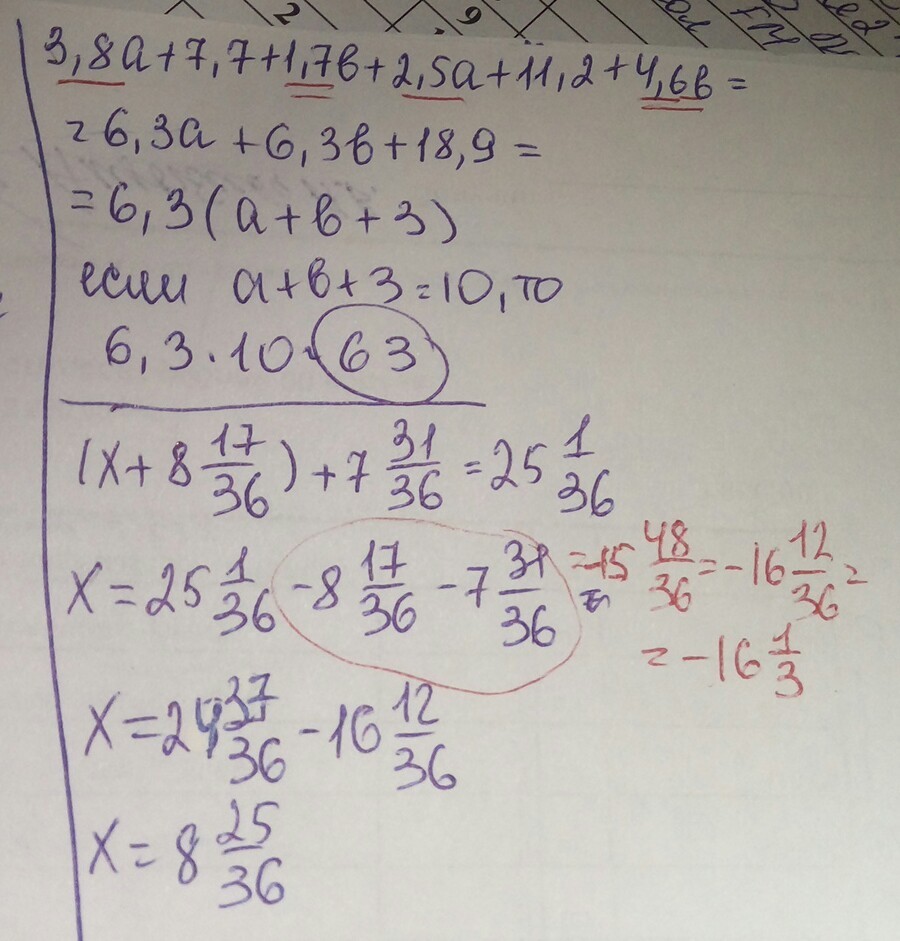 3,8a+7,7+1,7в+2,5a+11,2+4,6в=
=6,3a+6,3в+18,9=
=6,3(a+в+3)
если a+в+3=10,то
6,3·10=63
(x+8 17/36)+7 31/36=25 1/36
x=25 1/36-8 17/36-7 31/36
=-15 48/36=-16 12/36=
=-16 1/3
x=24 37/36-16 12/36
x=8 25/36